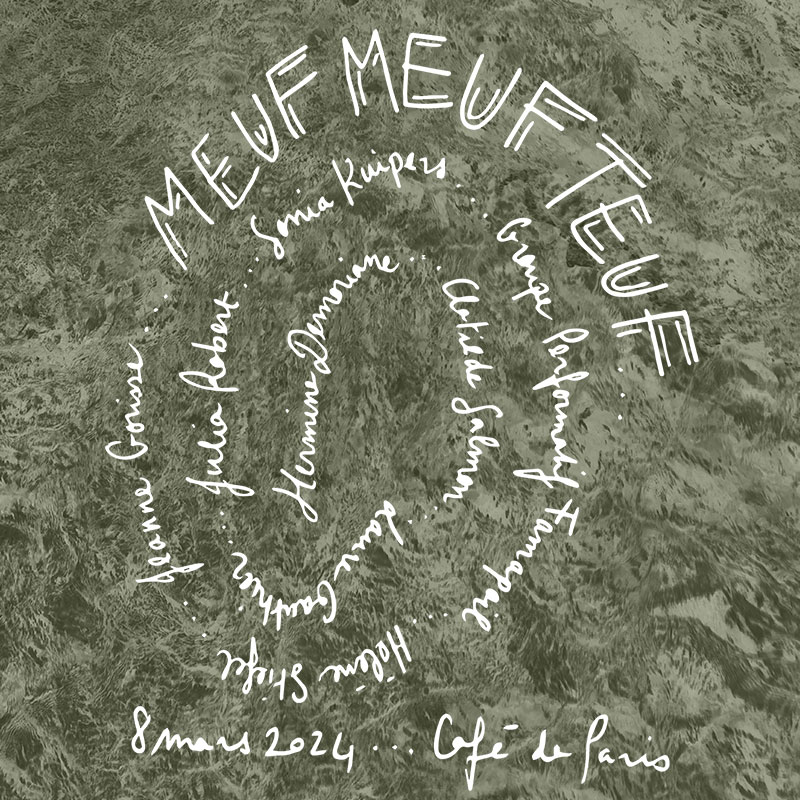 MEUF MEUF TEUF ...
Hermine Demoriane ...
Clotilde Salmon ...
Laure Gauthier ...
Julia Robert ...
Sonia Kuipers ...
Groupe Performatif Famapoil ...
Hélène Stiefel ...
Jeanne Gorisse ...
8 mars 2024 ... Café de Paris